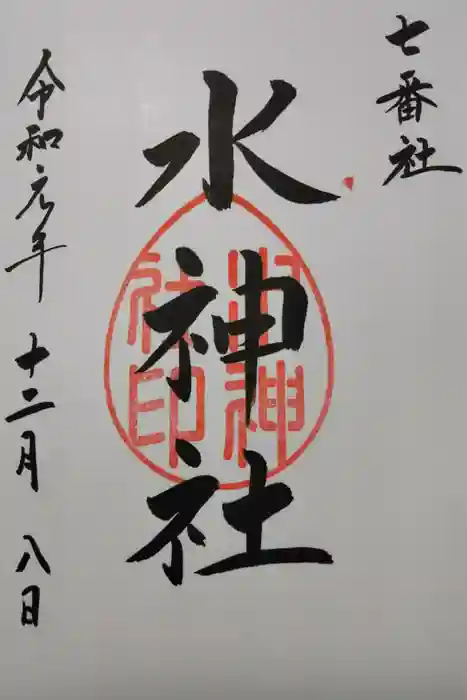 七番社
水神社
水神
社印
令和元年 十二月 八日